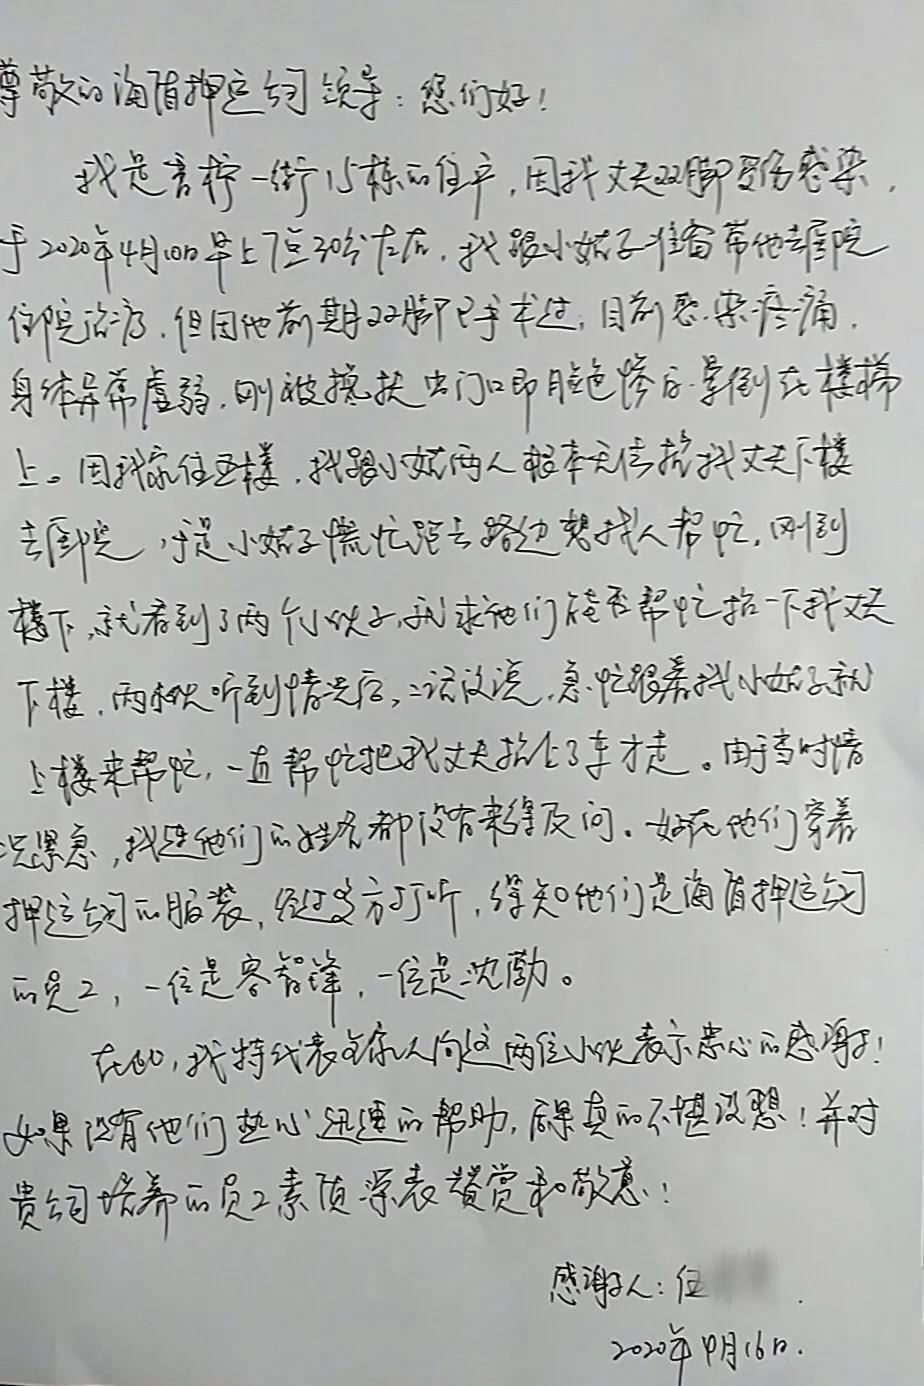 尊敬的海盾押运公司领导：您们好！
我是育梓一街15栋的住户，因我丈夫双脚受伤感染，
于2020年4月10日早上7点30分左右，我跟小姑子准备带他去医院
住院治疗，但因他前期双脚已手术过，目前感染疼痛，
身体异常虚弱，刚被搀扶出门口即脸色惨白晕倒在楼梯
上。因我家住五楼，我跟小姑两人根本无法抬我丈夫下楼
去医院，于是小姑子慌忙跑去路边想找人帮忙，刚到
楼下，就看到了两个小伙子，就求他们能否帮忙抬一下我丈夫
下楼，两小伙听到情况后，二话没说，急忙跟着我小姑子就
上楼来帮忙，一直帮忙把我丈夫抬上了车才走。由于当时情
况紧急，我连他们的姓名都没有来得及问。好在他们穿着
押运公司的服装，经过多方打听，得知他们是海盾押运公司
的员工，一位是容智锋，一位是沈勋。
在此，我特代表全家人向这两位小伙表示衷心的感谢！
如果没有他们热心迅速的帮助，后果真的不堪设想！并对
贵公司培养的员工素质深表赞赏和敬意！
感谢人：伍
2020年4月16日.